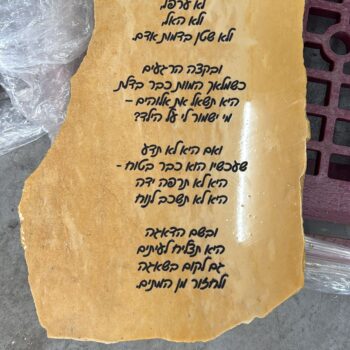 לא ערפל.
ולא האל,
ולא שטן בדמות אדם.
ובקצה הרגעים
כשמלאך המוות כבר בדלת
היא תשאל את אלוהים –
מי ישמור לי על הילד?
ואם היא לא תדע
שעכשיו הוא כבר בטוח -
היא לא תרפה ידה
היא לא תשכב לנוח
ובשם הדאגה
היא תצליח לעיתים
גם לקום בשאגה
ולחזור מן המתים.